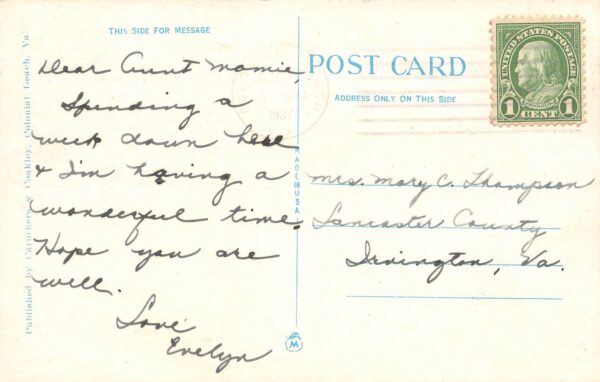 THIS SIDE FOR MESSAGE
Dear Aunt Mamie,
Spending a
week down here
& I'm having a
wonderful time.
Hope you are
well.
Love
Evelyn
Published by Caruthers & Coakley, Colonial Beach, Va.
MADE IN U.S.A.
M
POST CARD
ADDRESS ONLY ON THIS SIDE
1937
UNITED STATES POSTAGE
1 1
CENT
Mrs. Mary C. Thompson
Lancaster County
Irvington, Va.